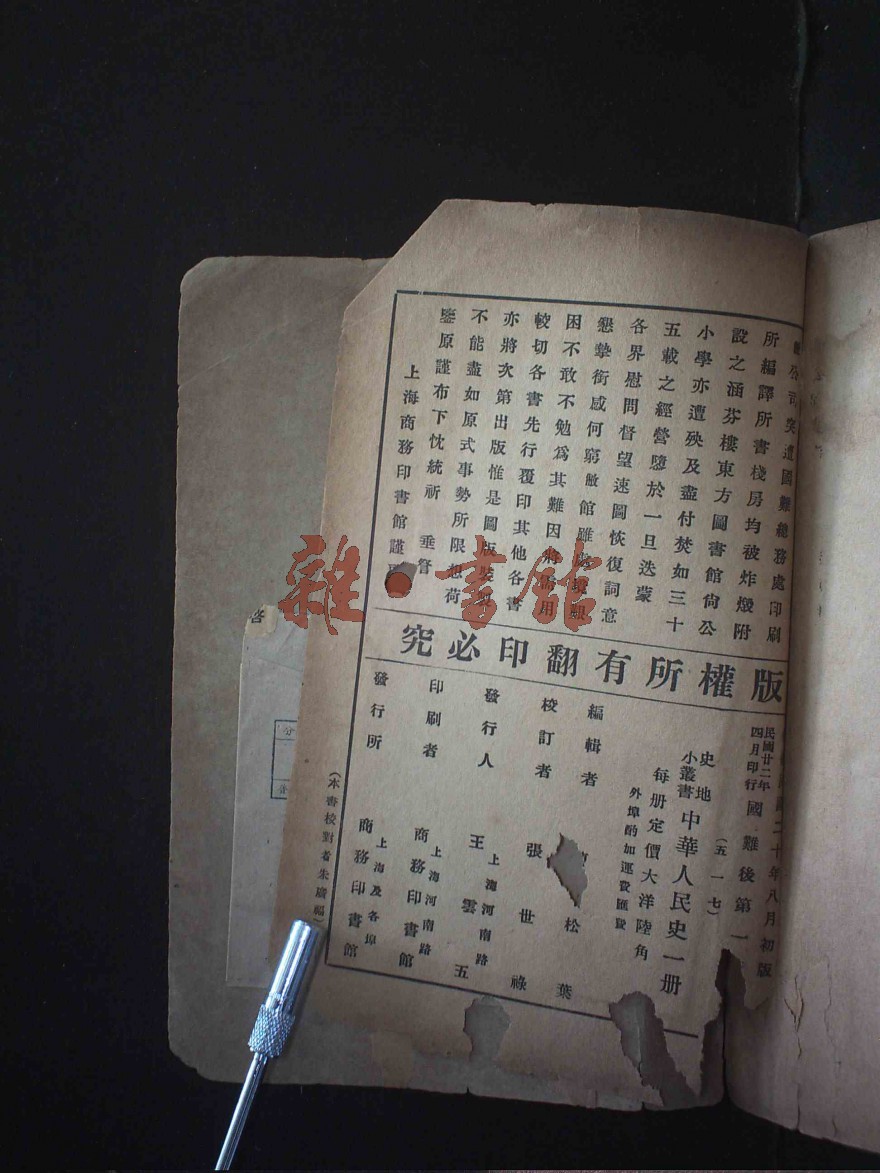 公司突遭國難總務處印刷
所編譯所書棧房均被炸燬附
設之涵芬樓東方圖書館尙公
小學亦遭殃及盡付焚如三十
五載之經營隳於一旦迭蒙
各界慰問督望速圖恢復詞意
懇摯銜感何窮敝館雖處境艱
困不敢不勉爲其難因將需用
較切各書先行覆印其他各書
亦將次第出版惟是圖版裝製
不能盡如原式事勢所限想荷
鑒原謹布下忱統祈 垂詧
上海商務印書館謹
版權所有翻印必究
二十年八月初版
民國廿二年四月印行國難後第一
(五一七)
史地小叢書中華人民史一册
每册定價大洋陸角
外埠酌加運費匯費
編輯者 松葉
校訂者 張世祿
發行人 王雲五
上海河南路
印刷者 商務印書館
上海河南路
發行所 商務印書館
上海及各埠
(本書校對者朱廣福)
雜·書館
分